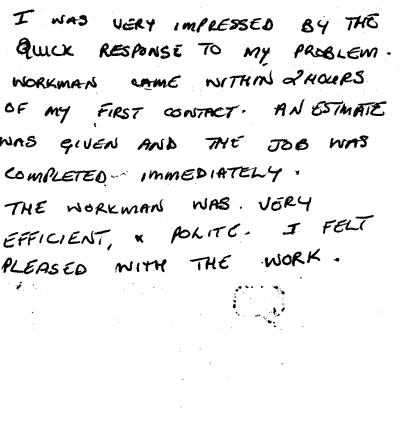 I WAS VERY IMPRESSED BY THE
QUICK RESPONSE TO MY PROBLEM.
WORKMAN CAME WITHIN 2 HOURS
OF MY FIRST CONTACT. AN ESTIMATE
WAS GIVEN AND THE JOB WAS
COMPLETED IMMEDIATELY.
THE WORKMAN WAS VERY
EFFICIENT, & POLITE. I FELT
PLEASED WITH THE WORK.